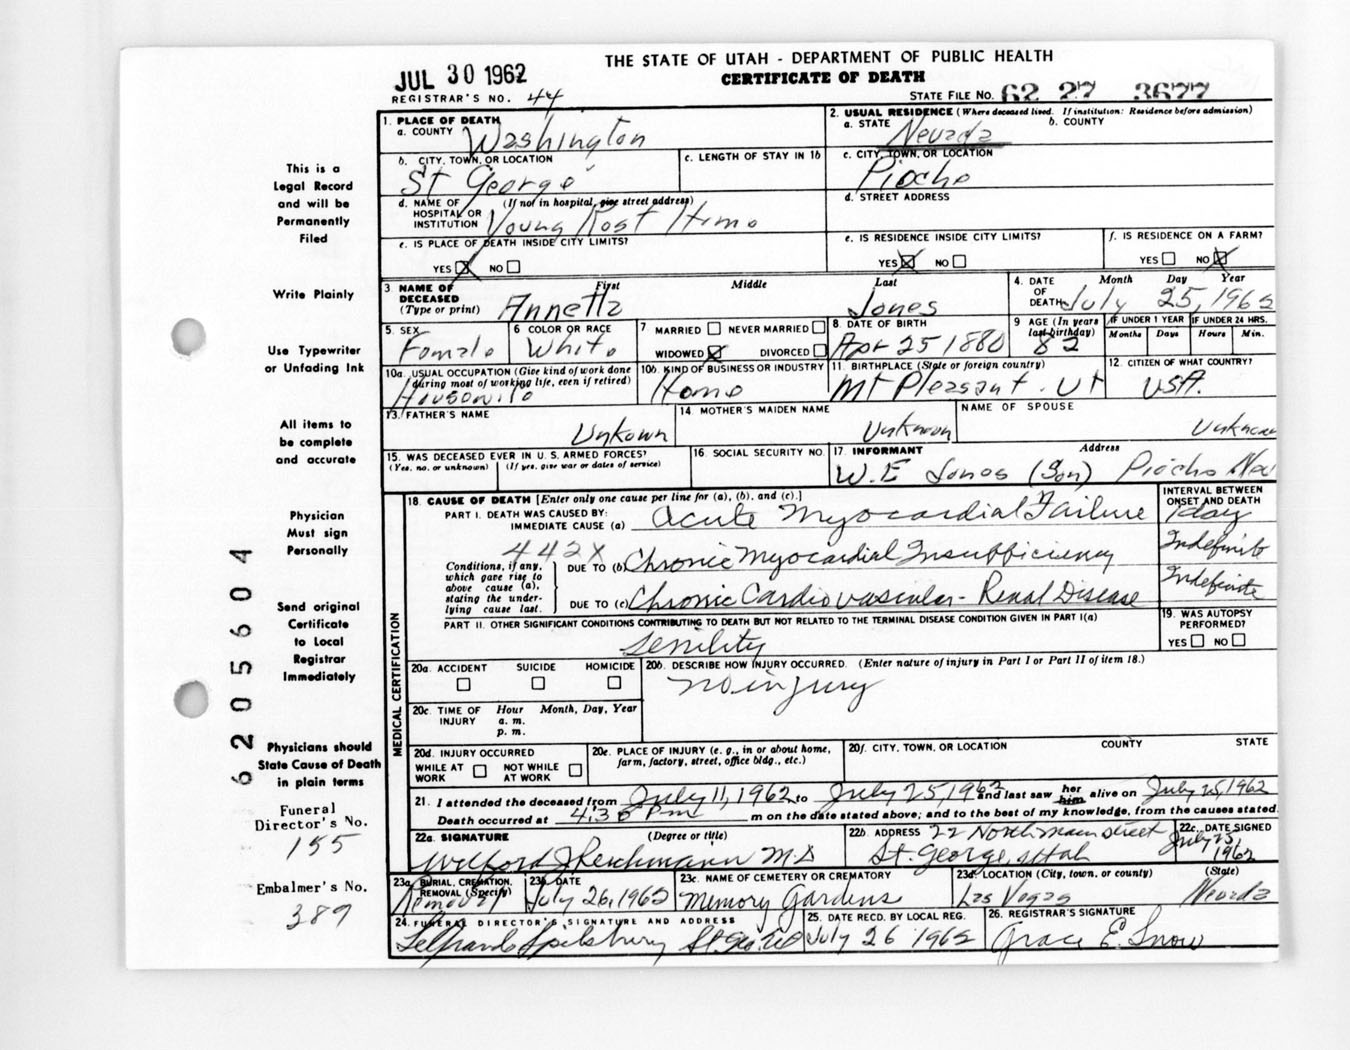 THE STATE OF UTAH - DEPARTMENT OF PUBLIC HEALTH
JUL 30 1962
CERTIFICATE OF DEATH
REGISTRAR'S NO. 44
STATE FILE NO. 62 27 3677
1. PLACE OF DEATH
a. COUNTY Washington
2. USUAL RESIDENCE (Where deceased lived. If institution: Residence before admission)
a. STATE Nevada b. COUNTY
b. CITY, TOWN, OR LOCATION
St George
c. LENGTH OF STAY IN 1b
c. CITY, TOWN, OR LOCATION
Pioche
d. NAME OF (If not in hospital, give street address)
HOSPITAL OR
INSTITUTION Young Rest Home
d. STREET ADDRESS
e. IS PLACE OF DEATH INSIDE CITY LIMITS?
YES X NO
e. IS RESIDENCE INSIDE CITY LIMITS?
YES X NO
f. IS RESIDENCE ON A FARM?
YES NO X
3. NAME OF DECEASED
(Type or print)
First Middle Last
Annetta Jones
4. DATE OF DEATH
Month Day Year
July 25, 1962
5. SEX
Female
6 COLOR OR RACE
White
7 MARRIED NEVER MARRIED
WIDOWED X DIVORCED
8. DATE OF BIRTH
Apr 25 1880
9 AGE (In years last birthday)
82
IF UNDER 1 YEAR
Months Days
IF UNDER 24 HRS.
Hours Min.
10a. USUAL OCCUPATION (Give kind of work done
during most of working life, even if retired)
Housewife
10b. KIND OF BUSINESS OR INDUSTRY
Home
11. BIRTHPLACE (State or foreign country)
Mt Pleasant. Ut
12. CITIZEN OF WHAT COUNTRY?
USA.
13. FATHER'S NAME
Unkown
14. MOTHER'S MAIDEN NAME
Unknown
NAME OF SPOUSE
Unknown
15. WAS DECEASED EVER IN U. S. ARMED FORCES?
(Yes, no, or unknown) (If yes, give war or dates of service)
16. SOCIAL SECURITY NO.
17. INFORMANT Address
W. E Jones (Son) Pioche Nev
MEDICAL CERTIFICATION
18. CAUSE OF DEATH [Enter only one cause per line for (a), (b), and (c).]
INTERVAL BETWEEN
ONSET AND DEATH
PART I. DEATH WAS CAUSED BY:
IMMEDIATE CAUSE (a) Acute Myocardial Failure 1 day
442X
Conditions, if any,
which gave rise to
above cause (a),
stating the under-
lying cause last.
DUE TO (b) Chronic Myocardial Insufficiency Indefinite
DUE TO (c) Chronic Cardiovascular-Renal Disease Indefinite
PART II. OTHER SIGNIFICANT CONDITIONS CONTRIBUTING TO DEATH BUT NOT RELATED TO THE TERMINAL DISEASE CONDITION GIVEN IN PART I(a)
Senility
19. WAS AUTOPSY
PERFORMED?
YES NO
20a. ACCIDENT SUICIDE HOMICIDE
20b. DESCRIBE HOW INJURY OCCURRED. (Enter nature of injury in Part I or Part II of item 18.)
no injury
20c. TIME OF INJURY
Hour Month, Day, Year
a. m.
p. m.
20d. INJURY OCCURRED
WHILE AT WORK NOT WHILE AT WORK
20e. PLACE OF INJURY (e. g., in or about home,
farm, factory, street, office bldg., etc.)
20f. CITY, TOWN, OR LOCATION COUNTY STATE
21. I attended the deceased from July 11, 1962 to July 25, 1962 and last saw her him alive on July 25, 1962
Death occurred at 4:30 Pm m on the date stated above; and to the best of my knowledge, from the causes stated.
22a. SIGNATURE (Degree or title)
Wilford J Reichmann M.D
22b. ADDRESS 22 North Main Street
St. George, Utah
22c. DATE SIGNED
July 25,
1962
23a. BURIAL, CREMATION,
REMOVAL (Specify)
Removal
23b. DATE
July 26, 1962
23c. NAME OF CEMETERY OR CREMATORY
Memory Gardens
23d. LOCATION (City, town, or county) (State)
Las Vegas Nevada
24. FUNERAL DIRECTOR'S SIGNATURE AND ADDRESS
Spilsbury St. Geo.
25. DATE RECD. BY LOCAL REG.
July 26 1962
26. REGISTRAR'S SIGNATURE
Grace E. Snow
This is a
Legal Record
and will be
Permanently
Filed
Write Plainly
Use Typewriter
or Unfading Ink
All items to
be complete
and accurate
Physician
Must sign
Personally
Send original
Certificate
to Local
Registrar
Immediately
Physicians should
State Cause of Death
in plain terms
Funeral
Director's No.
155
Embalmer's No.
389
62 05604